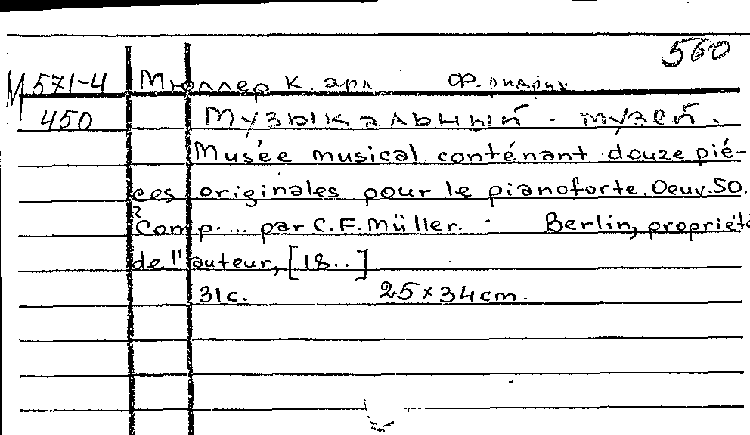 560
М 571-4 Мюллер К. арл Ф. ридрих
450 Музыкальный музей.
Musée musical conténant douze pié-
ces originales pour le pianoforte. Oeuv. 50.
Comp... par C. F. Müller. - Berlin, propriété
de l'auteur, [18..]
31 с. 25×34 cm.